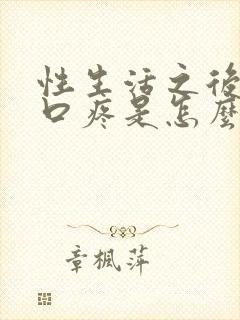 性生活之後
口疼是怎麼
章楓萍